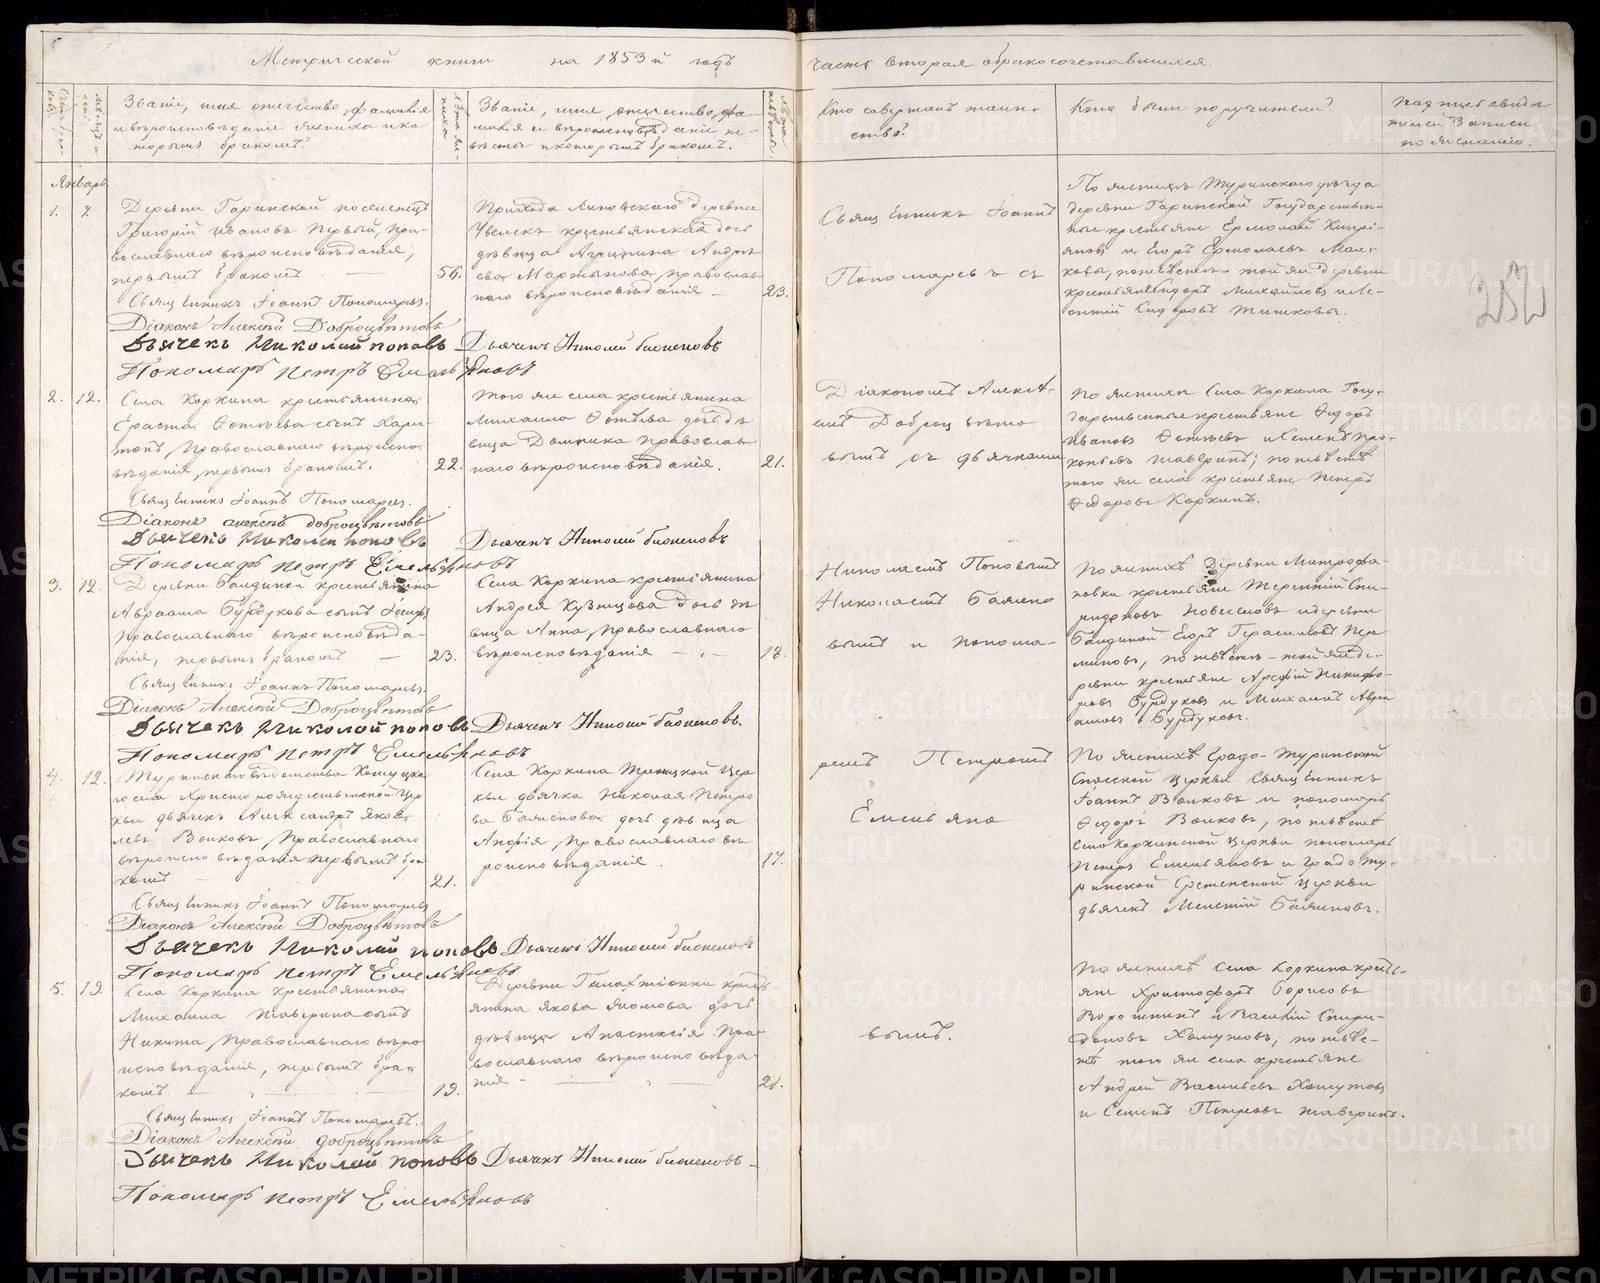 Метрической книги на 1853й годъ
часть вторая бракосочетавшихся.
Званіе, имя отечество, фамилія
и вѣроисповѣданіе жениха и ко-
торымъ бракомъ?
Званіе, имя, отечество, фа-
милія и вѣроисповѣданіе не-
вѣсты и которымъ бракомъ.
Кто совершалъ таин-
ство?
Кто были поручители?
Январь.
1. 7.
Деревни Гаринской поселенецъ
Григорій Ивановъ Первый, пра-
вославнаго вѣроисповѣданія,
первымъ бракомъ — 56.
Священникъ Іоаннъ Пономаревъ.
Діаконъ Алексѣй Доброцвѣтовъ
Дьячекъ Николай Поповъ
Пономарь Петръ Емельяновъ
Прихода Липовскаго деревни
крестьянская дочь
дѣвица Андре
ева Мартынова, православ
наго вѣроисповѣданія — 23.
Дьячекъ Николай
Священникъ Іоаннъ
Пономаревъ съ
По женихѣ Туринскаго уѣзда
деревни Гаринской Государствен-
ные крестьяне Ермолай Кипрі-
яновъ и Егоръ Ермолаевъ
по невѣстѣ той же деревни
крестьяне Сидоръ Михайловъ и Ле-
онтій Сидоровъ Тишковы.
252
2. 12.
Села Коркина крестьянина
Ераста Фотѣева сынъ Хари-
тонъ, Православнаго вѣроиспо-
вѣданія, первымъ бракомъ. 22.
Священникъ Іоаннъ Пономаревъ.
Діаконъ Алексѣй Доброцвѣтовъ
Дьячекъ Николай Поповъ
Пономарь Петръ Емельяновъ
Того же села крестьянина
Михаила Фотѣева дочь дѣ
вица Домника Православ
наго вѣроисповѣданія. 21.
Дьячекъ Николай
Діакономъ Алексѣ-
емъ Доброцвѣто
вымъ съ дьячками
По женихѣ Села Коркина Госу-
дарственные крестьяне Ѳедоръ
Ивановъ Фотѣевъ и Семенъ Про-
копьевъ Таверинъ; по невѣстѣ
того же села крестьяне Петръ
Ѳедоровъ Коркинъ.
3. 12.
Деревни Бандиной крестьянина
Авраама Бурдукова сынъ Іосифъ,
Православнаго вѣроисповѣда-
нія, первымъ бракомъ — 23.
Священникъ Іоаннъ Пономаревъ.
Діаконъ Алексѣй Доброцвѣтовъ
Дьячекъ Николай Поповъ
Пономарь Петръ Емельяновъ
Села Коркина крестьянина
Андрея Кузнецова дочь дѣ
вица Анна, Православнаго
вѣроисповѣданія — 18.
Дьячекъ Николай
Николаемъ Поповымъ
Николаемъ
вымъ и понома-
По женихѣ Деревни Митрофа-
новки крестьяне Терентій Спи-
ридоновъ и деревни
Бандиной Егоръ Герасимовъ Пер
миновъ, по невѣстѣ — той же де-
ревни крестьяне Арефій Никифо-
ровъ Бурдуковъ и Михаилъ Авра
амовъ Бурдуковъ.
4. 12.
Туринскаго вѣдомства
села Христорождественской Цер
кви дьячекъ Александръ Яков
левъ Волковъ, Православнаго
вѣроисповѣданія первымъ бра
комъ — 21.
Священникъ Іоаннъ Пономаревъ
Діаконъ Алексѣй Доброцвѣтовъ
Дьячекъ Николай Поповъ
Пономарь Петръ Емельяновъ
Села Коркина Троицкой Цер
кви дьячка Николая Петро
ва дочь дѣвица
Анфія, Православнаго вѣ
роисповѣданія. 17.
Дьячекъ Николай
ремъ Петромъ
Емельяно
По женихѣ Градо-Туринской
Спасской Церкви Священникъ
Іоаннъ Волковъ и пономарь
Ѳедоръ Волковъ, по невѣстѣ
Села Коркинской Церкви пономарь
Петръ Емельяновъ и Градо Ту-
ринской Срѣтенской Церкви
дьячекъ
5. 19.
Села Коркина крестьянина
Михаила Таверина сынъ
Никита, Православнаго вѣро
исповѣданія, первымъ бра
комъ. — 19.
Священникъ Іоаннъ Пономаревъ.
Діаконъ Алексѣй Доброцвѣтовъ
Дьячекъ Николай Поповъ
Пономарь Петръ Емельяновъ
Деревни крестъ
янина Якова дочь
дѣвица Анастасія Пра
вославнаго вѣроисповѣда-
нія — 21.
Дьячекъ Николай
вымъ.
По женихѣ Села Коркина кресть-
яне Христофоръ Борисовъ
и Василій Спири-
доновъ Хомутовъ; по невѣс-
тѣ того же села крестьяне
Андрей Васильевъ Хомутовъ
и Семенъ Петровъ Таверинъ.
METRIKI.GASO-URAL.RU